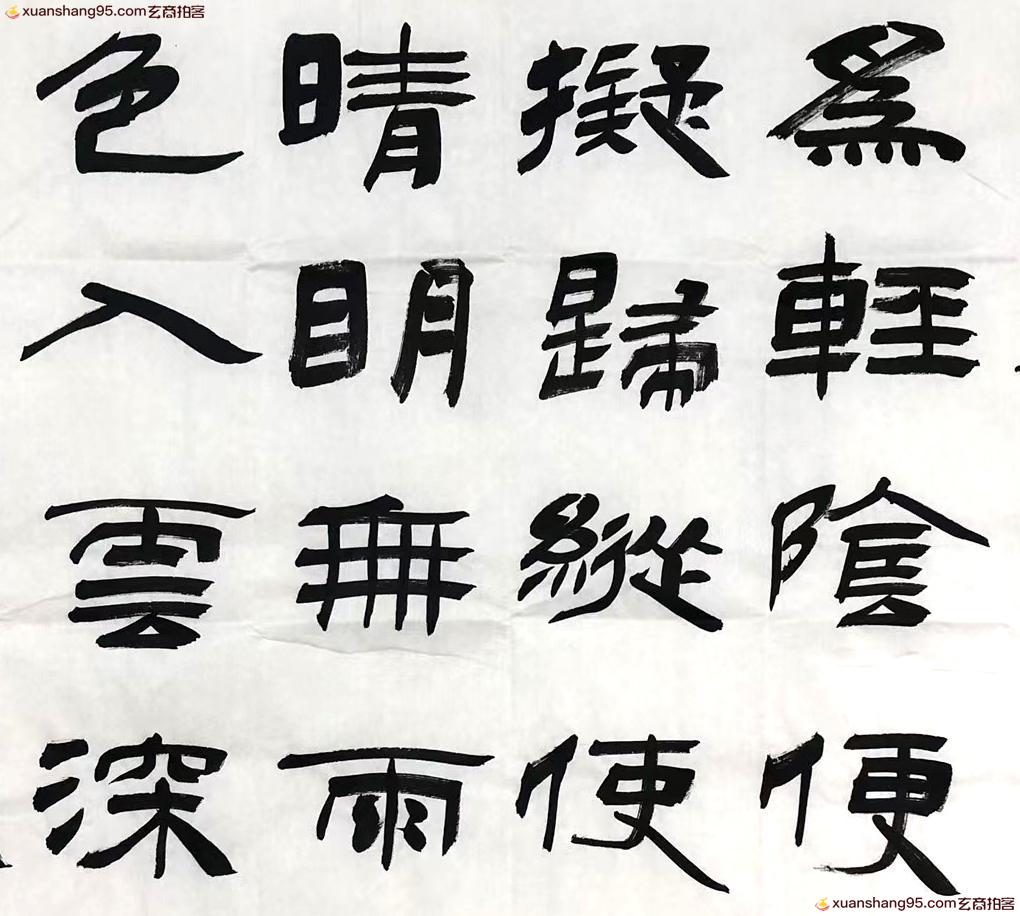 xuanshang95.com玄商拍客
為輕陰便
擬歸縱使
晴明無雨
色入雲深
xuanshang95.com玄商拍客